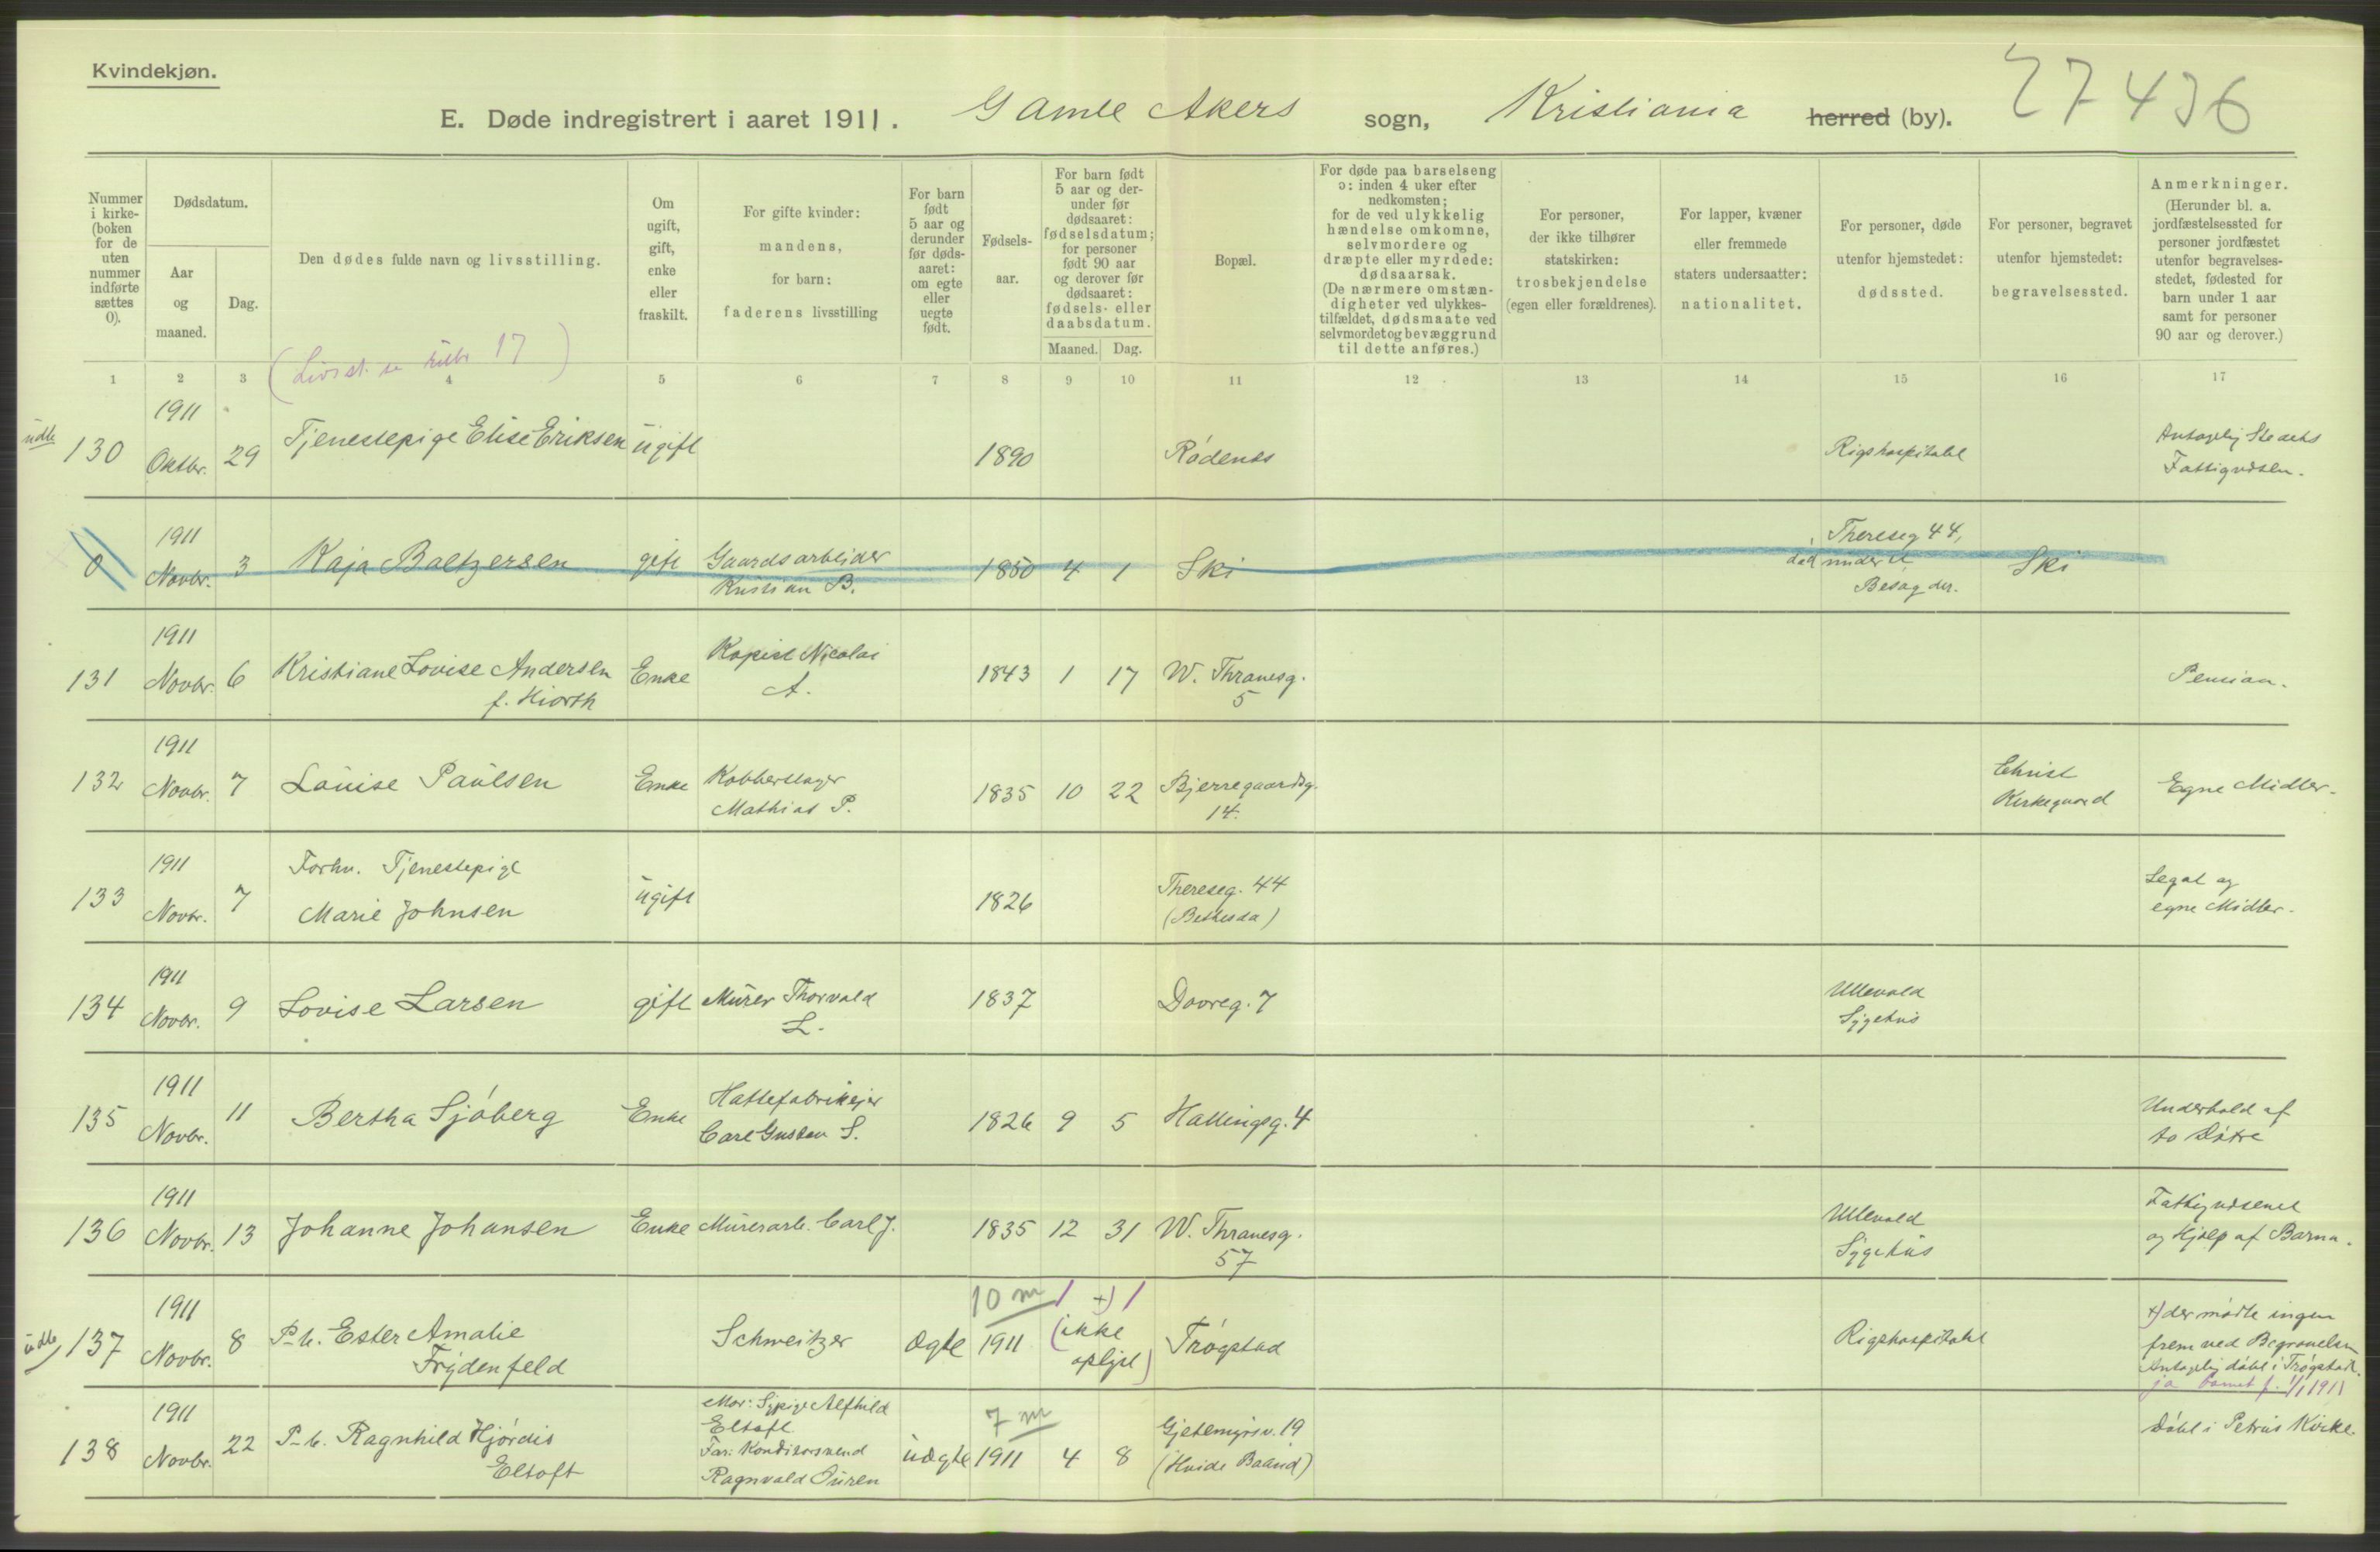 Kvindekjøn.
E. Døde indregistrert i aaret 1911. Gamle Akers sogn, Kristiania herred (by). 27436
Nummer i kirke-(boken for de uten nummer indførte sættes 0).
Dødsdatum.
Aar og maaned.
Dag.
Den dødes fulde navn og livsstilling.
(Livsst. se rubr 17)
Om ugift, gift, enke eller fraskilt.
For gifte kvinder: mandens, for barn: faderens livsstilling
For barn født 5 aar og derunder før døds-aaret: om egte eller uegte født.
Fødsels-aar.
For barn født 5 aar og der-under før dødsaaret: fødselsdatum; for personer født 90 aar og derover før dødsaaret: fødsels- eller daabsdatum.
Maaned. Dag.
Bopæl.
For døde paa barselseng ɔ: inden 4 uker efter nedkomsten; for de ved ulykkelig hændelse omkomne, selvmordere og dræpte eller myrdede: dødsaarsak. (De nærmere omstæn-digheter ved ulykkes-tilfældet, dødsmaate ved selvmordet og bevæggrund til dette anføres.)
For personer, der ikke tilhører statskirken: trosbekjendelse (egen eller forældrenes).
For lapper, kvæner eller fremmede staters undersaatter: nationalitet.
For personer, døde utenfor hjemstedet: dødssted.
For personer, begravet utenfor hjemstedet: begravelsessted.
Anmerkninger. (Herunder bl. a. jordfæstelsessted for personer jordfæstet utenfor begravelses-stedet, fødested for barn under 1 aar samt for personer 90 aar og derover.)
1 2 3 4 5 6 7 8 9 10 11 12 13 14 15 16 17
udb 130 1911 Oktbr. 29 Tjenestepige Elise Eriksen ugift 1890 Rødenes Rigshospitalet Antagelig Stedets Fattigvæsen.
0 1911 Novbr. 3 Kaja Baltzersen gift Gaardsarbeider Kristian B. 1850 4 1 Ski Thereseg 44, død under et Besøg der. Ski
131 1911 Novbr. 6 Kristiane Lovise Andersen f. Hiorth Enke Kopist Nicolai A. 1843 1 17 W. Thranesg. 5 Pension.
132 1911 Novbr. 7 Louise Paulsen Enke Kobberslager Mathias P. 1835 10 22 Bjerregaardsg. 14. Christ Kirkegaard Egne Midler.
133 1911 Novbr. 7 Forhv. Tjenestepige Marie Johnsen ugift 1826 Thereseg. 44 (Bethesda) Legat og egne Midler.
134 1911 Novbr. 9 Lovise Larsen gift Murer Thorvald L. 1837 Dovreg. 7 Ullevold Sygehus
135 1911 Novbr. 11 Bertha Sjøberg Enke Hattefabrikejer Carl Gustav S. 1826 9 5 Hallingsg. 4 Underhold af to Døtre
136 1911 Novbr. 13 Johanne Johansen Enke Murerarb. Carl J. 1835 12 31 W. Thranesg. 57 Ullevold Sygehus Fattigvæsenet og Hjælp af Barna.
udb 137 1911 Novbr. 8 P-b. Ester Amalie Frydenfeld Schweitzer ægte 10 m 1911 1 +) 1 (ikke oplyst) Trøgstad Rigshospitalet +) der mødte ingen frem ved Begravelsen Antagelig døbt i Trøgstad. ja barnet f. 1/1 1911
138 1911 Novbr. 22 P-b. Ragnhild Hjørdis Eltoft Mor: Sypige Alfhild Eltoft Far: Konditorsvend Ragnvald Duren uægte 7 m 1911 4 8 Gjetemyrsv. 19 (Hvide Baand) Døbt i Petrus Kirke.